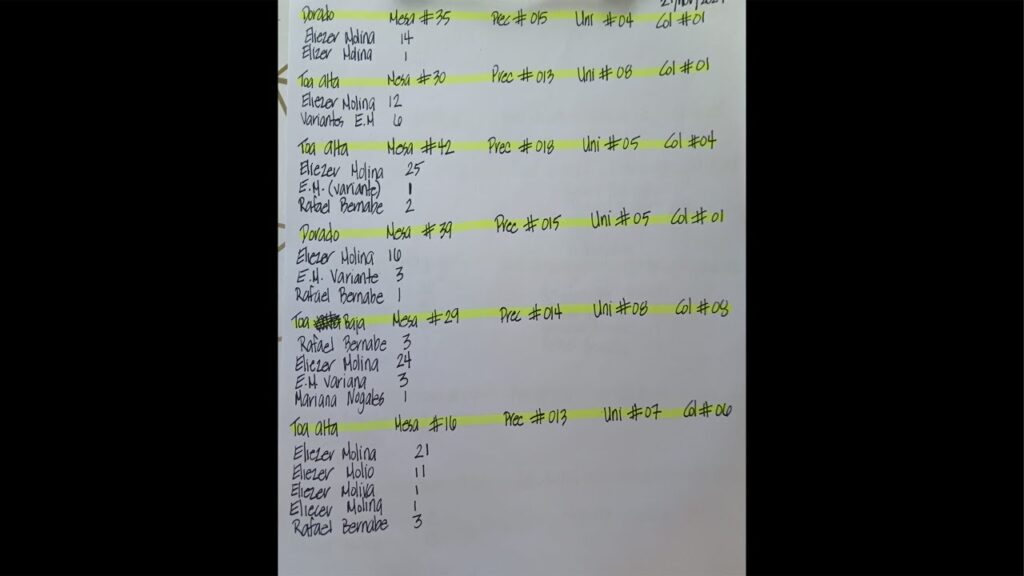 Dorado Mesa #35 Prec #015 Uni #04 Col #01
Eliezer Molina 14
Elizer Molina 1
Toa Alta Mesa #30 Prec #013 Uni #08 Col #01
Eliezer Molina 12
Variantes E.M 6
Toa Alta Mesa #42 Prec #018 Uni #05 Col #04
Eliezer Molina 25
E.M. (variante) 1
Rafael Bernabe 2
Dorado Mesa #39 Prec #015 Uni #05 Col #01
Eliezer Molina 16
E.M. Variante 3
Rafael Bernabe 1
Toa Baja Mesa #29 Prec #014 Uni #08 Col #08
Rafael Bernabe 3
Eliezer Molina 24
E.M Variana 3
Mariana Nogales 1
Toa Alta Mesa #16 Prec #013 Uni #07 Col #06
Eliezer Molina 21
Eliezer Molio 11
Eliezer Moliva 1
Eliecer Molina 1
Rafael Bernabe 3